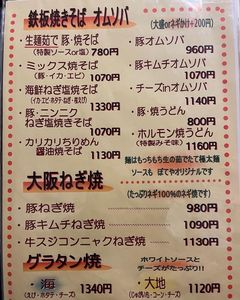 鉄板焼きそば オムソバ
(大盛orネギがけ+200円)
生麺茹で 豚・焼そば
(特製ソースor塩) 780円
ミックス焼そば
(豚・イカ・エビ) 1130円
海鮮ねぎ塩焼きそば
1160円
豚・ニンニク
ねぎ塩焼きそば 1030円
カリカリちりめん
醤油焼そば 1160円
豚オムソバ
960円
豚キムチオムソバ
1070円
チーズinオムソバ
1140円
豚・焼うどん
800円
ホルモン焼うどん
(特製みそ味) 1160円
麺はもっちもち生の茹でたて極太麺
ソースも ぼてやオリジナルです
大阪ねぎ焼
(たっぷりネギ100%のネギ焼です)
・豚ねぎ焼 980円
・豚キムチねぎ焼 1090円
・牛スジコンニャクねぎ焼 1130円
グラタン焼
ホワイトソースと
チーズがたっぷり!!
・海 1340円
(えび・ホタテ・チーズ)
・大地 1120円